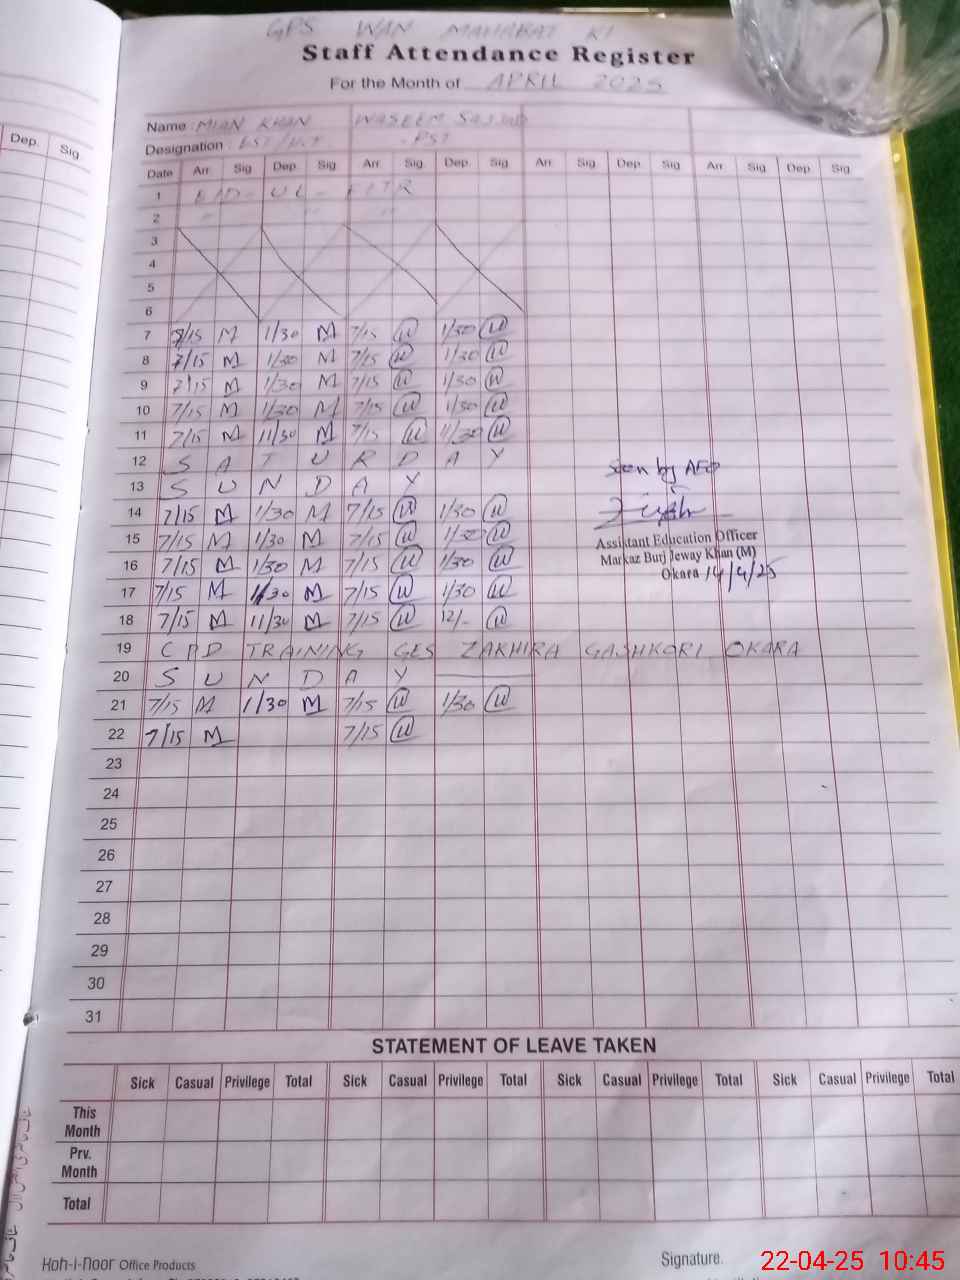 GPS WAN MAHABAT KI
Staff Attendance Register
For the Month of APRIL 2025
Name : MIAN KHAN WASEEM SAJJAD
Designation : EST / H.T PST
Dep. Sig.
Date Arr. Sig Dep. Sig Arr. Sig. Dep. Sig Arr. Sig Dep. Sig Arr. Sig Dep Sig
1 EID - UL - FITR
2 " " "
3
4
5
6
7 7/15 M 1/30 M 7/15 W 1/30 W
8 7/15 M 1/30 M 7/15 W 1/30 W
9 7/15 M 1/30 M 7/15 W 1/30 W
10 7/15 M 1/30 M 7/15 W 1/30 W
11 7/15 M 11/30 M 7/15 W 11/30 W
12 S A T U R D A Y
13 S U N D A Y
Seen by AEO
14 7/15 M 1/30 M 7/15 W 1/30 W
15 7/15 M 1/30 M 7/15 W 1/30 W
Assistant Education Officer
Markaz Burj Jeway Khan (M)
Okara 14/4/25
16 7/15 M 1/30 M 7/15 W 1/30 W
17 7/15 M 1/30 M 7/15 W 1/30 W
18 7/15 M 11/30 M 7/15 W 12/- W
19 CPD TRAINING GES ZAKHIRA GASHKORI OKARA
20 S U N D A Y
21 7/15 M 1/30 M 7/15 W 1/30 W
22 7/15 M 7/15 W
23
24
25
26
27
28
29
30
31
STATEMENT OF LEAVE TAKEN
Sick Casual Privilege Total Sick Casual Privilege Total Sick Casual Privilege Total Sick Casual Privilege Total
This Month
Prv. Month
Total
Koh-i-noor Office Products
Signature.
22-04-25 10:45